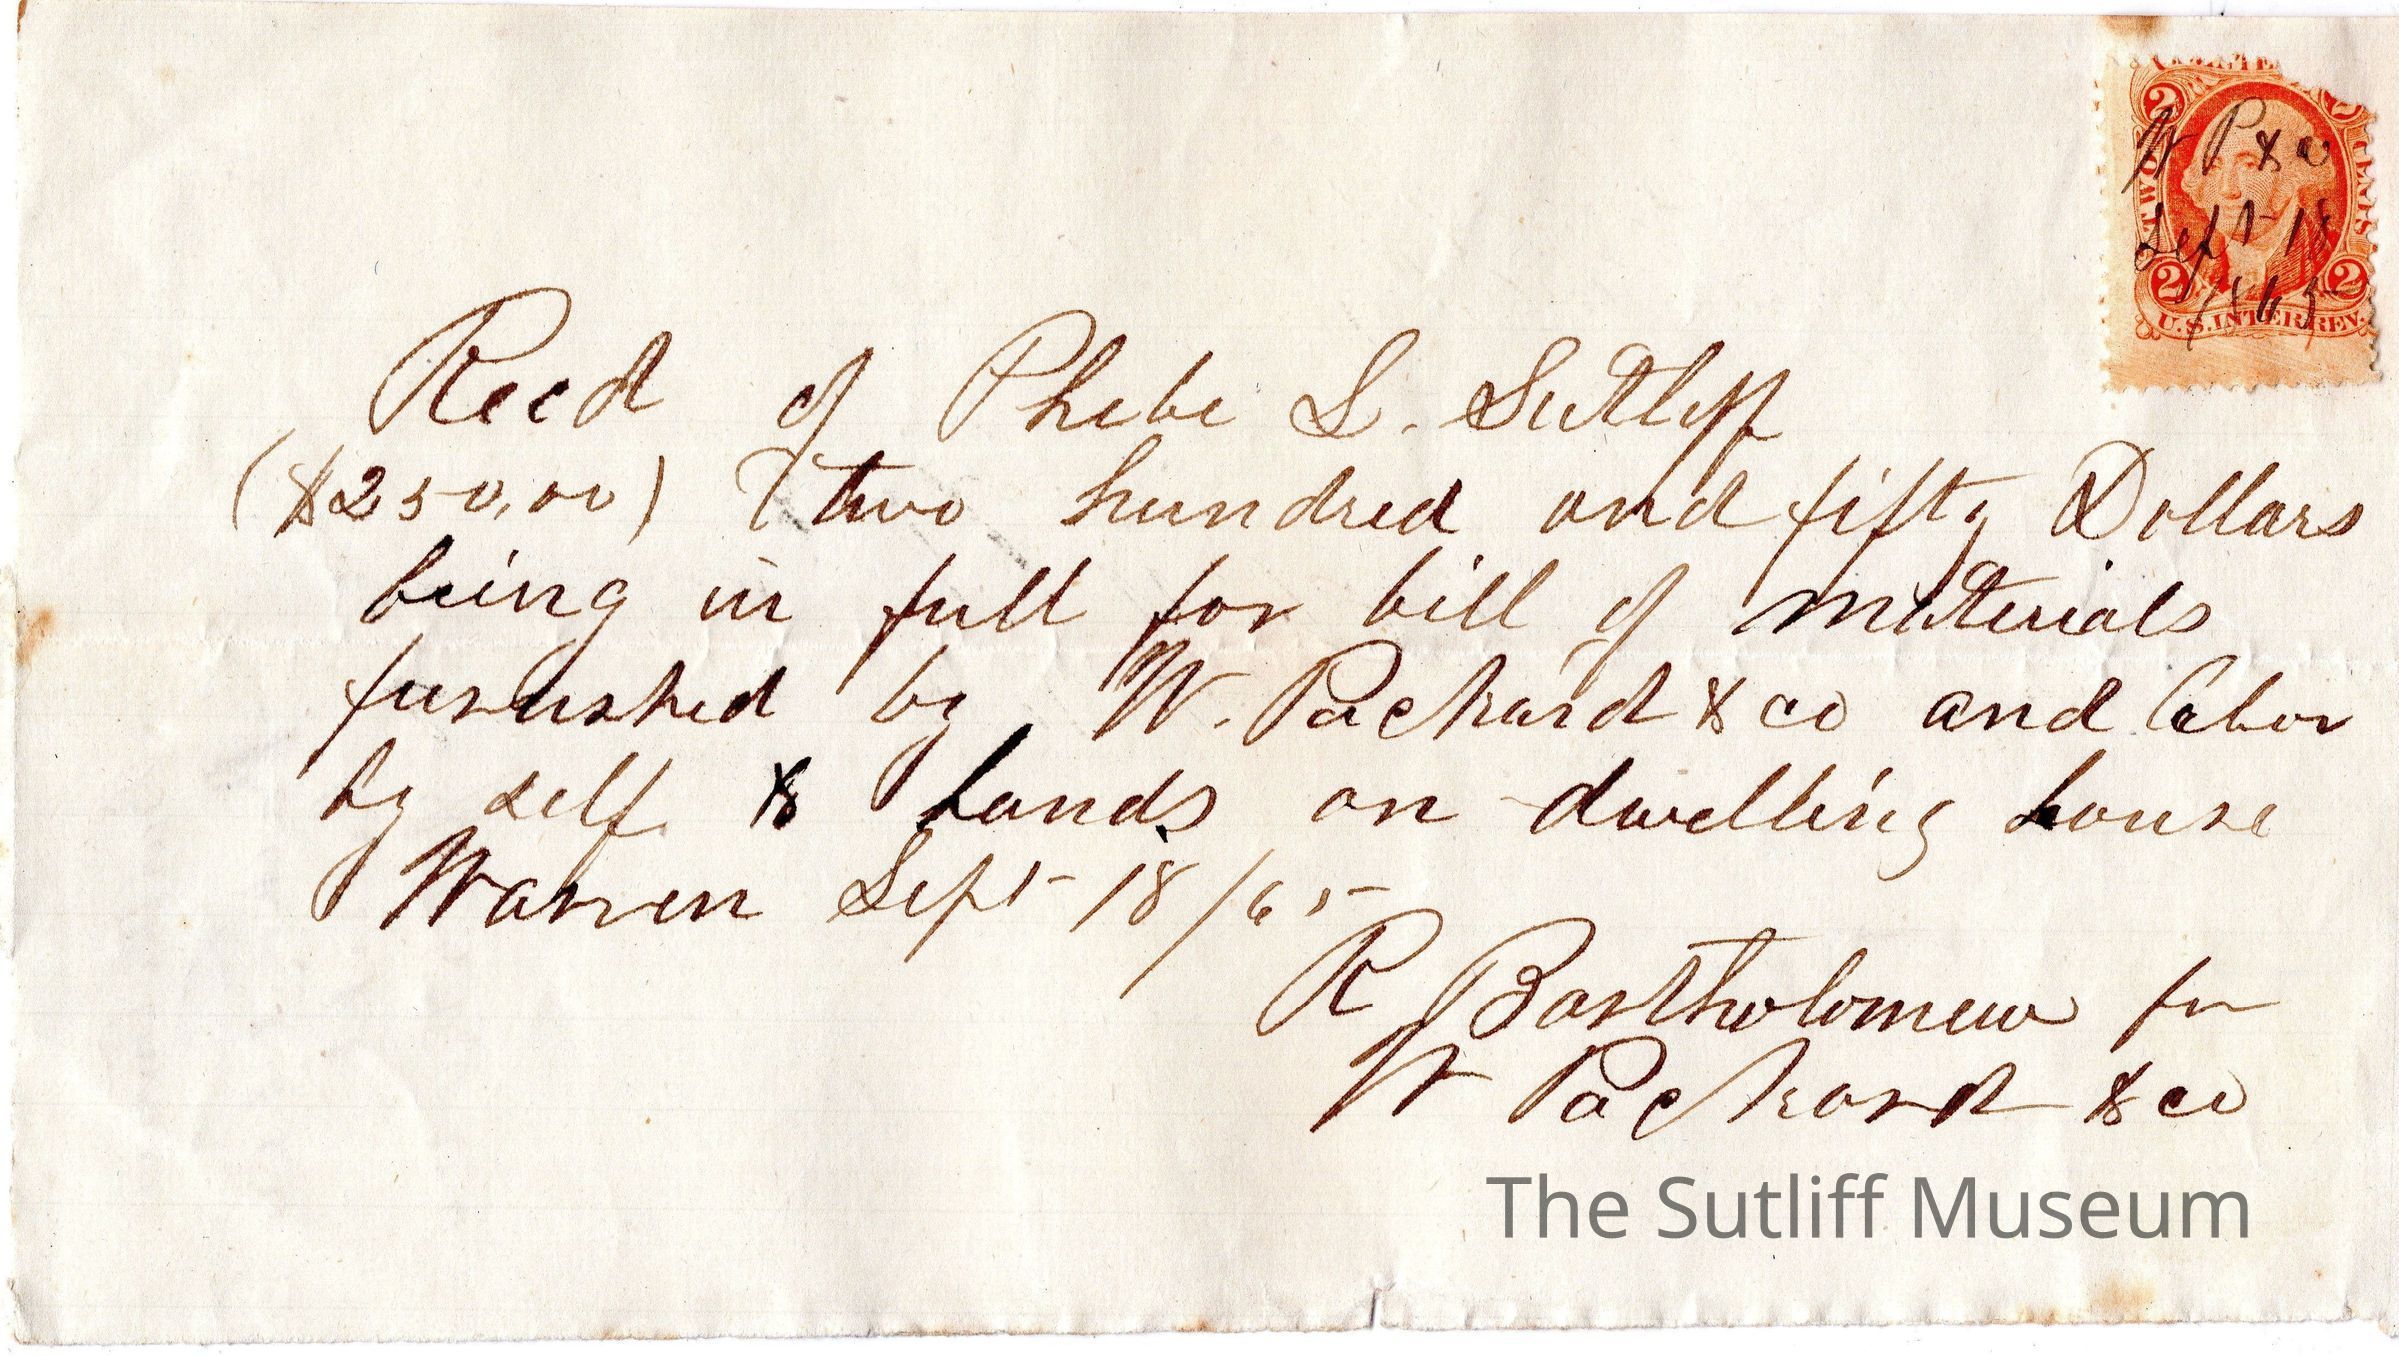 W P & co
Sept 18
1865
2 2
TWO CENTS
2 2
U.S. INTER. REV.
Recd of Phebe L. Sutliff
($250,00) two hundred and fifty Dollars
being in full for bill of materials
furnished by W. Packard & co and labor
by self & hands on dwelling house
Warren Sept 18/65
R Bartholomew for
W Packard & co
The Sutliff Museum